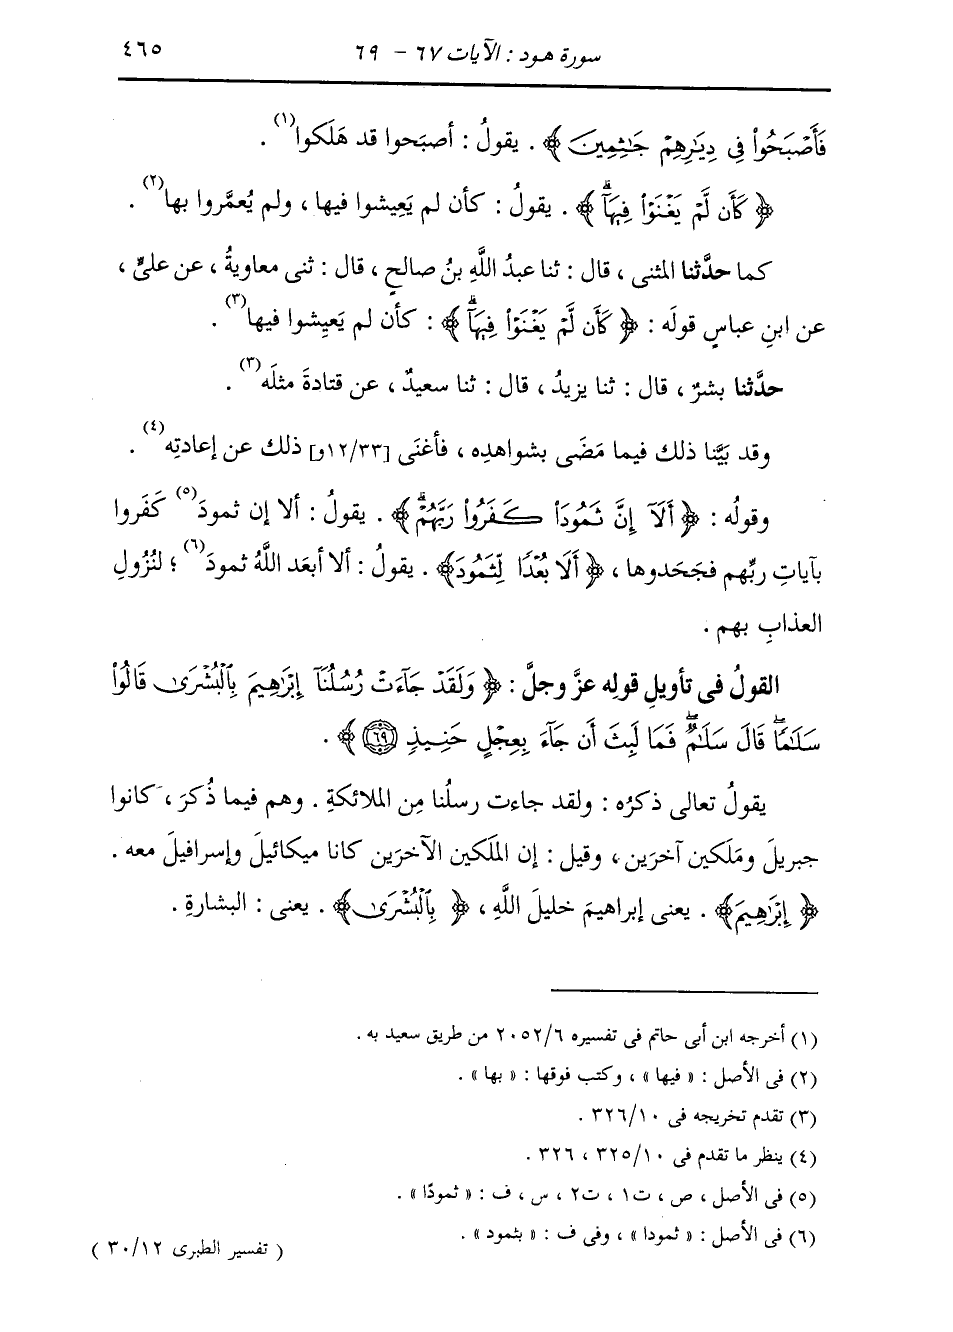 سورة هود : الآيات ٦٧ - ٦٩ ٤٦٥
فَأَصْبَحُواْ فِى دِيَٰرِهِمْ جَٰثِمِينَ ﴾ . يقولُ : أصبَحوا قد هَلَكوا(١) .
﴿ كَأَن لَّمْ يَغْنَوْاْ فِيهَآۗ ﴾ . يقولُ : كأن لم يَعِيشوا فيها ، ولم يُعمَّروا بها(٢) .
كما حدَّثنا المثنى ، قال : ثنا عبدُ اللَّهِ بنُ صالحٍ ، قال : ثنى معاويةُ ، عن علىٍّ ،
عن ابنِ عباسٍ قولَه : ﴿ كَأَن لَّمْ يَغْنَوْاْ فِيهَآۗ ﴾ : كأن لم يَعِيشوا فيها(٣) .
حدَّثنا بشرٌ ، قال : ثنا يزيدُ ، قال : ثنا سعيدٌ ، عن قتادةَ مثلَه(٣) .
وقد بَيَّنا ذلك فيما مَضَى بشواهدِه ، فأغنَى [١٢/٣٣و] ذلك عن إعادتِه(٤) .
وقولُه : ﴿ أَلَآ إِنَّ ثَمُودَاْ كَفَرُواْ رَبَّهُمْۗ ﴾ . يقولُ : ألا إن ثمودَ(٥) كَفَروا
بآياتِ ربِّهم فجَحَدوها ، ﴿ أَلَا بُعْدًا لِّثَمُودَ ﴾ . يقولُ : ألا أبعَد اللَّهُ ثمودَ(٦) ؛ لنُزُولِ
العذابِ بهم .
القولُ فى تأويلِ قولِه عزَّ وجلَّ : ﴿ وَلَقَدْ جَآءَتْ رُسُلُنَآ إِبْرَٰهِيمَ بِٱلْبُشْرَىٰ قَالُواْ
سَلَٰمًاۖ قَالَ سَلَٰمٌۖ فَمَا لَبِثَ أَن جَآءَ بِعِجْلٍ حَنِيذٍ ٦٩ ﴾ .
يقولُ تعالى ذكرُه : ولقد جاءت رسلُنا مِن الملائكةِ . وهم فيما ذُكرَ ، كانوا
جبريلَ ومَلَكين آخرَين ، وقيل : إن الملَكين الآخرَين كانا ميكائيلَ وإسرافيلَ معه .
﴿ إِبْرَٰهِيمَ ﴾ . يعنى إبراهيمَ خليلَ اللَّهِ ، ﴿ بِٱلْبُشْرَىٰ ﴾ . يعنى : البشارةِ .
(١) أخرجه ابن أبى حاتم فى تفسيره ٢٠٥٢/٦ من طريق سعيد به .
(٢) فى الأصل : « فيها » ، وكتب فوقها : « بها » .
(٣) تقدم تخريجه فى ٣٢٦/١٠ .
(٤) ينظر ما تقدم فى ٣٢٥/١٠ ، ٣٢٦ .
(٥) فى الأصل ، ص ، ت١ ، ت٢ ، س ، ف : « ثمودًا » .
(٦) فى الأصل : « ثمودا » ، وفى ف : « بثمود » .
( تفسير الطبرى ٣٠/١٢ )